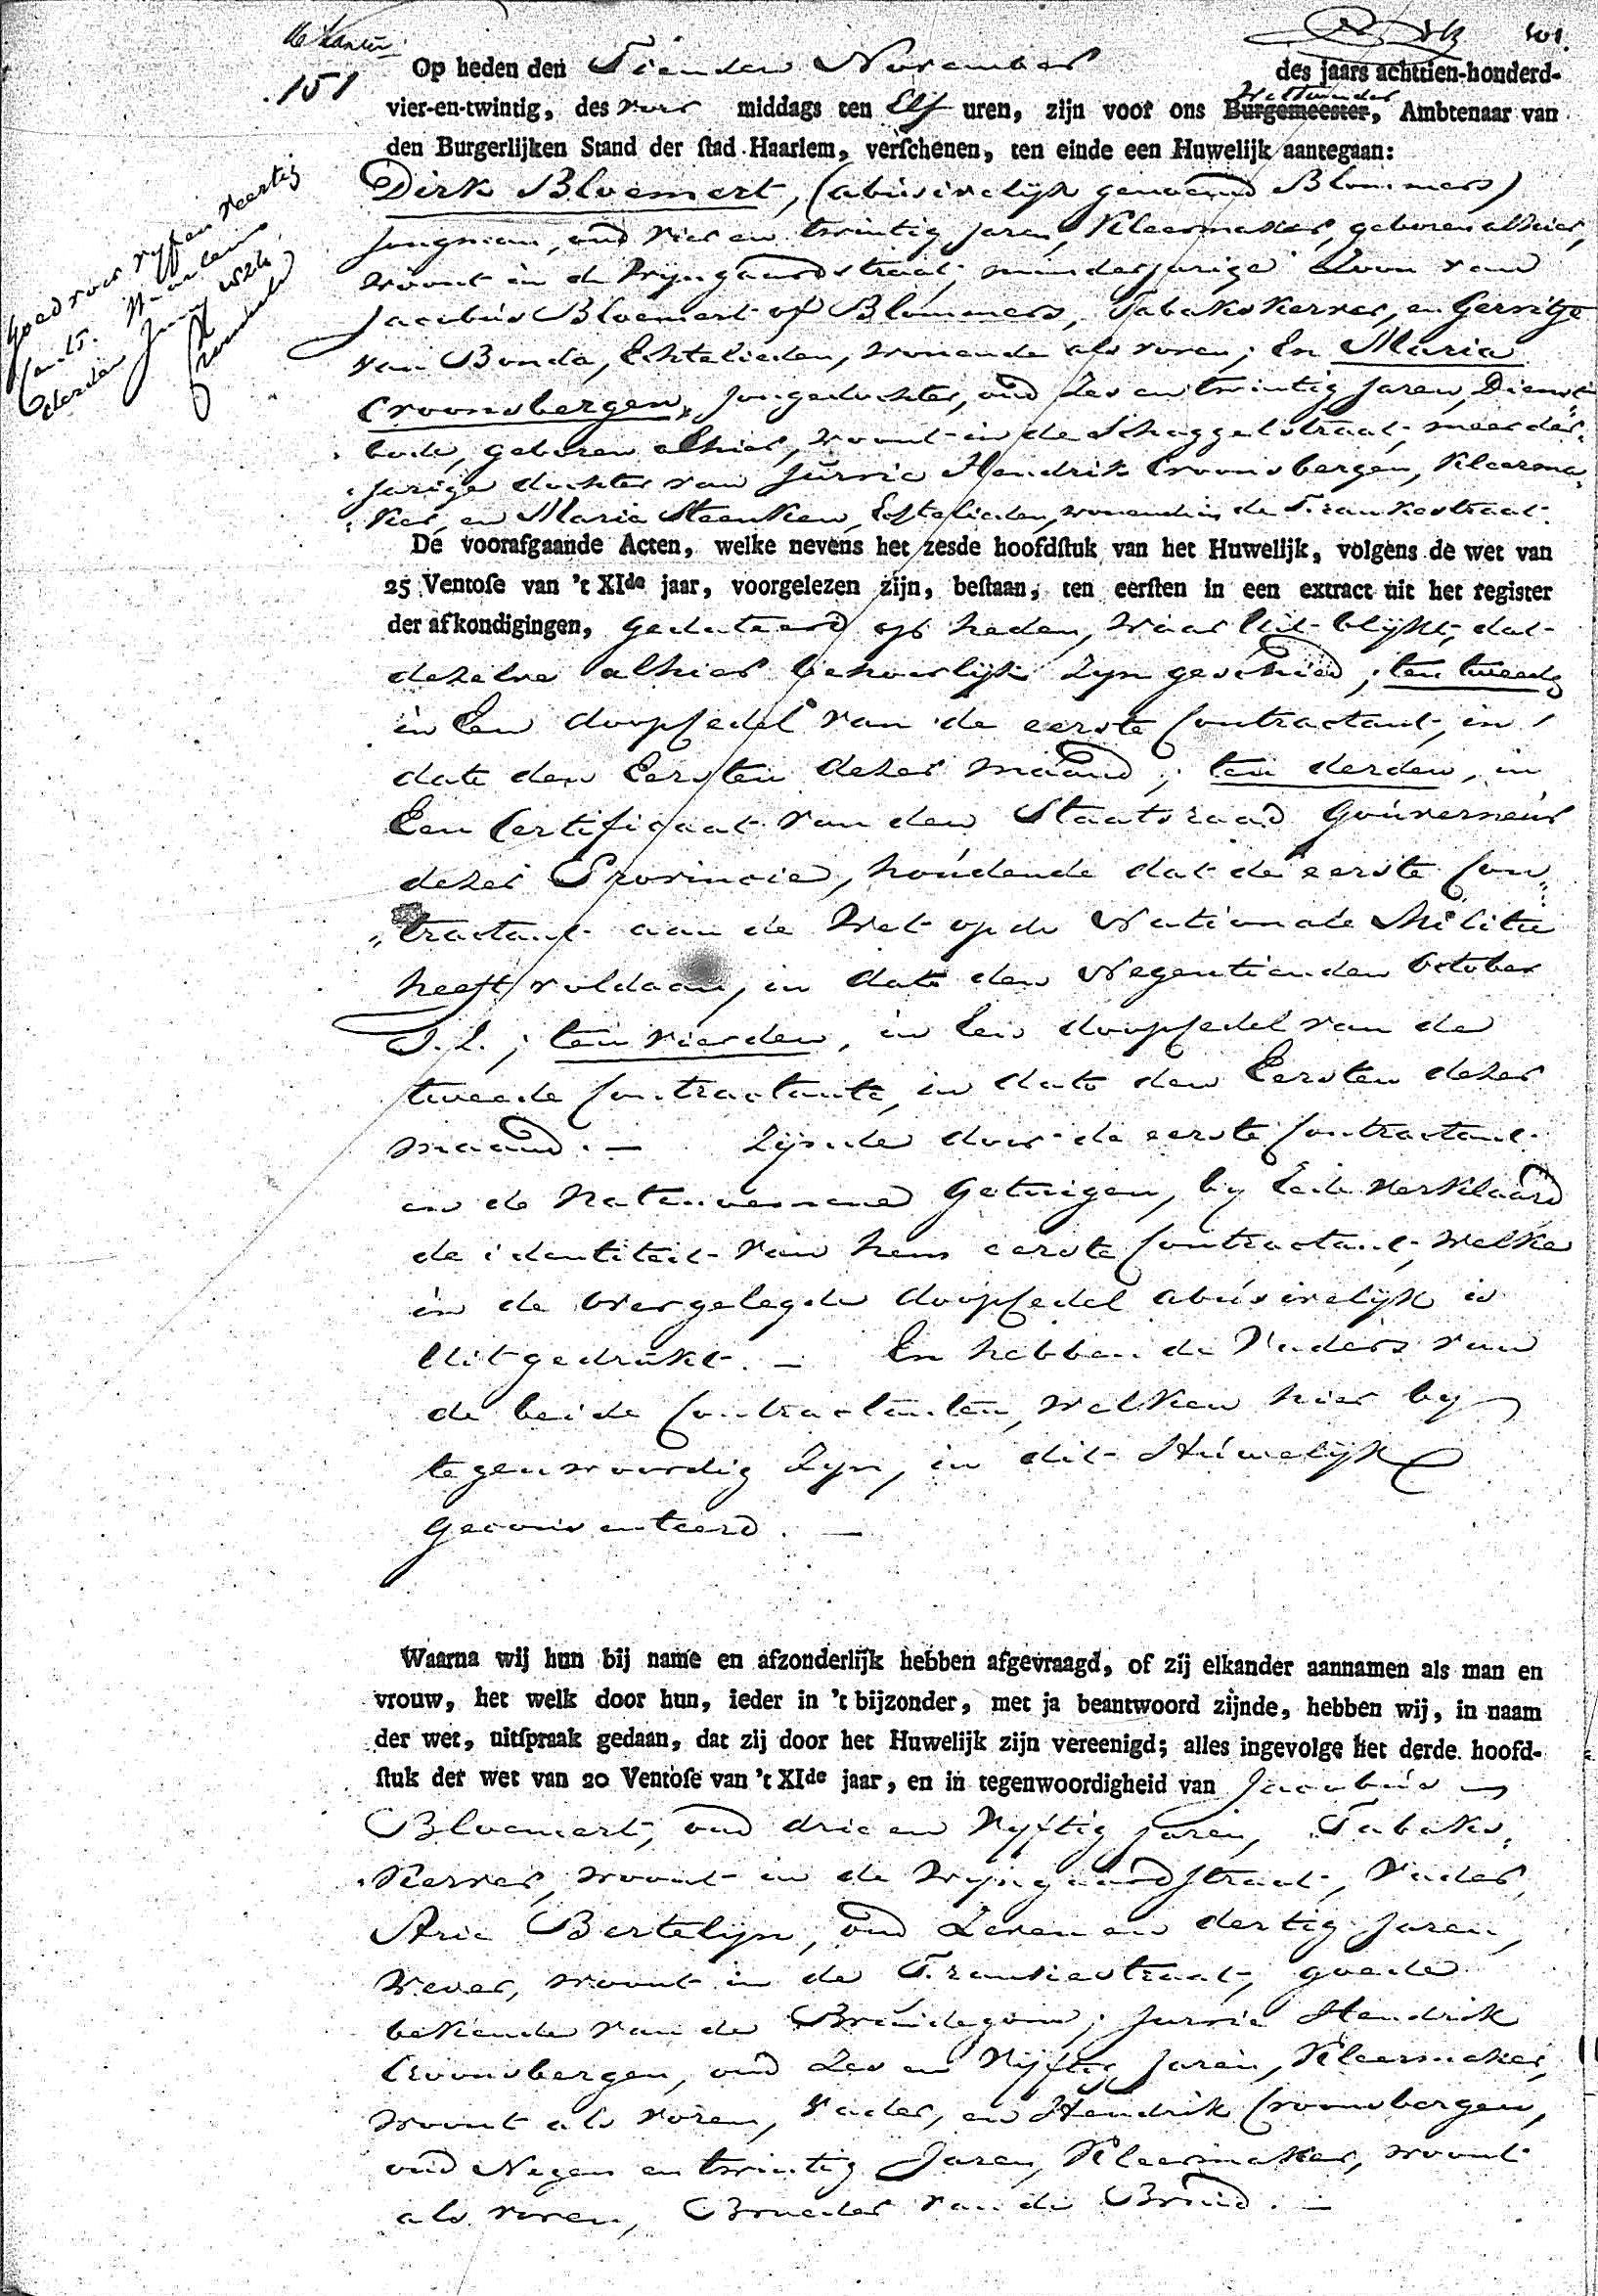 101.
151
Op heden den Tienden November des jaars achttien-honderd-
Wethouder
vier-en-twintig, des voor middags ten Elf uren, zijn voor ons Burgemeester, Ambtenaar van
den Burgerlijken Stand der ſtad Haarlem, verſchenen, ten einde een Huwelijk aantegaan:
Dirk Bloemert, (abúsivelijk genoemd Blommers)
Jongman, oud vier en twintig Jaren, Kleermaker, geboren alhier,
woont in de Wijngaardstraat, minderjarige Zoon van
Jacobús Bloemert of Blommers, Tabakskerver, en Gerritje
van Bonda, Echtelieden, wonende als voren; En Maria
Croonsbergen, Jongedochter, oud Zes en twintig Jaren, Dienst-
bode, geboren alhier, woont in de Schaggelstraat, meerder-
jarige dochter van Jurrie Hendrik Croonsbergen, Kleerma-
ker, en Maria Steenken, Echtelieden, wonende in de Frankestraat.
De voorafgaande Acten, welke nevens het zesde hoofdſtuk van het Huwelijk, volgens de wet van
25 Ventoſe van 't XIde jaar, voorgelezen zijn, beſtaan, ten eerſten in een extract uit het register
der afkondigingen, gedateerd op heden, waar Uit blijkt, dat
dezelve alhier behoorlijk zyn geschied; ten tweede
in Een doopcedel van de eerste Contractant, in
dato den Eersten dezer maand; ten derden, in
Een Certificaat van den Staatsraad Goúverneúr
dezer Provincie, hoúdende dat de eerste Con-
tractant aan de Wet op de Nationale Militie
heeft voldaan, in dato den Negentienden October
J.l.; ten vierden, in Een doopcedel van de
tweede Contractante, in dato den Eersten dezer
maand. — Zijnde door de eerste Contractant
en de Natenoemene Getuigen, by Eede verklaard
de identiteit van hem eerste Contractant, welke
in de overgelegde doopcedel abúsivelijk is
Uitgedrukt. — En hebben de Vaders van
de beide Contractanten, welken hier by
tegenwoordig Zyn, in dit Húwelijk
geconsenteerd. —
Waarna wij hun bij name en afzonderlijk hebben afgevraagd, of zij elkander aannamen als man en
vrouw, het welk door hun, ieder in 't bijzonder, met ja beantwoord zijnde, hebben wij, in naam
der wet, uitſpraak gedaan, dat zij door het Huwelijk zijn vereenigd; alles ingevolge het derde hoofd-
ſtuk der wet van 20 Ventoſe van 't XIde jaar, en in tegenwoordigheid van Jacobús
Bloemert, oud drie en Vyftig Jaren, Tabaks-
Kerver, woont in de Wyngaardstraat, Vader,
Arie Bertelyn, oud Zeven en dertig Jaren,
Wever, woont in de Frankestraat, goede
bekende van de Bruidegom; Jurrie Hendrik
Croonsbergen, oud Zes en Vijftig Jaren, Kleermaker,
woont als voren, Vader, en Hendrik Croonsbergen,
oud Negen en twintig Jaren, Kleermaker, woont
als voren, Broeder van de Bruid. —